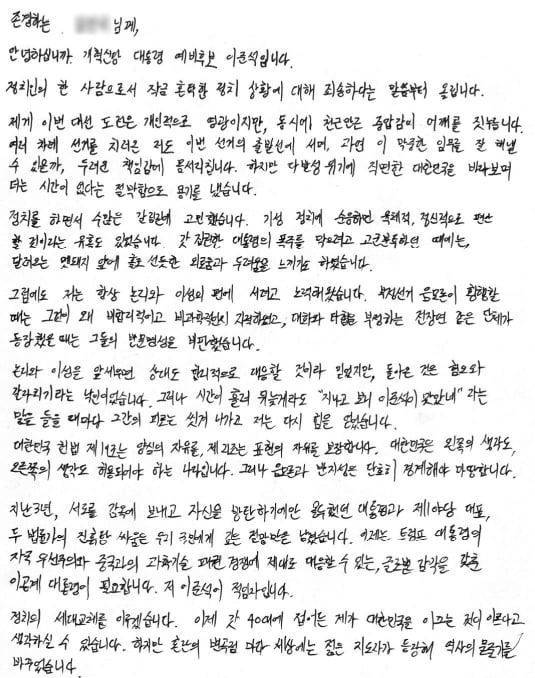 존경하는 님께,
안녕하십니까 개혁신당 대통령 예비후보 이준석입니다.
정치인의 한 사람으로서 작금 혼탁한 정치 상황에 대해 죄송하다는 말씀부터 올립니다.
제게 이번 대선 도전은 개인적으로 영광이지만, 동시에 천근만근 중압감이 어깨를 짓누릅니다.
여러 차례 선거를 치러온 저도 이번 선거의 출발선에 서며, 과연 이 막중한 임무를 잘 해낼
수 있을까, 두려운 책임감에 몸서리칩니다. 하지만 다발성 위기에 직면한 대한민국을 바라보며
더는 시간이 없다는 절박함으로 용기를 냈습니다.
정치를 하면서 수많은 갈림길에 고민했습니다. 기성 정치에 순응하면 육체적, 정신적으로 편안
할 것이라는 유혹도 있었습니다. 갓 집권한 대통령의 폭주를 막으려고 고군분투하던 때에는,
달려오는 멧돼지 앞에 홀로 선듯한 외로움과 두려움을 느끼기도 하였습니다.
그럼에도 저는 항상 논리와 이성의 편에 서려고 노력해왔습니다. 부정선거 음모론이 횡행할
때는 그것이 왜 비합리적이고 비과학적인지 지적하였고, 대화와 타협을 부정하는 전장연 같은 단체가
등장했을 때는 그들의 반문명성을 비판했습니다.
논리와 이성을 앞세우면 상대도 합리적으로 대응할 것이라 믿었지만, 돌아온 것은 혐오와
갈라치기라는 낙인이었습니다. 그러나 시간이 흘러 뒤늦게라도 "지나고 보니 이준석이 맞았네" 라는
말을 들을 때마다 그간의 피로는 씻겨 나가고 저는 다시 힘을 얻었습니다.
대한민국 헌법 제19조는 양심의 자유를, 제21조는 표현의 자유를 보장합니다. 대한민국은 왼쪽의 생각도,
오른쪽의 생각도 허용되어야 하는 나라입니다. 그러나 음모론과 반지성은 단호히 경계해야 마땅합니다.
지난 3년, 서로를 감옥에 보내고 자신을 방탄하기에만 몰두했던 대통령과 제1야당 대표,
두 법률가의 진흙탕 싸움은 우리 국민에게 깊은 절망만을 남겼습니다. 이제는 트럼프 대통령의
자국 우선주의와 중국과의 과학기술 패권 경쟁에 제대로 대응할 수 있는, 글로벌 감각을 갖춘
이공계 대통령이 필요합니다. 저 이준석이 적임자입니다.
정치의 세대교체를 이루겠습니다. 이제 갓 40대에 접어든 제가 대한민국을 이끄는 것이 이르다고
생각하실 수 있습니다. 하지만 혼란의 변곡점마다 세상에는 젊은 지도자가 등장해 역사의 물줄기를
바꾸었습니다.